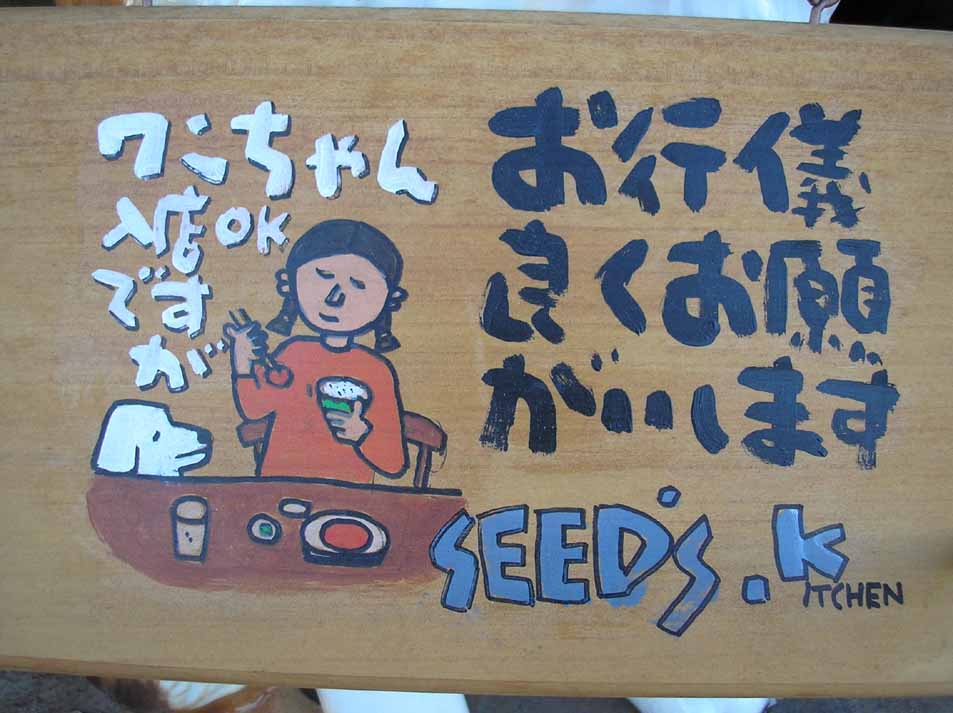 ワンちゃん
入店OK
です
が
お行儀
良くお願
がいします
SEED'S.K
ITCHEN